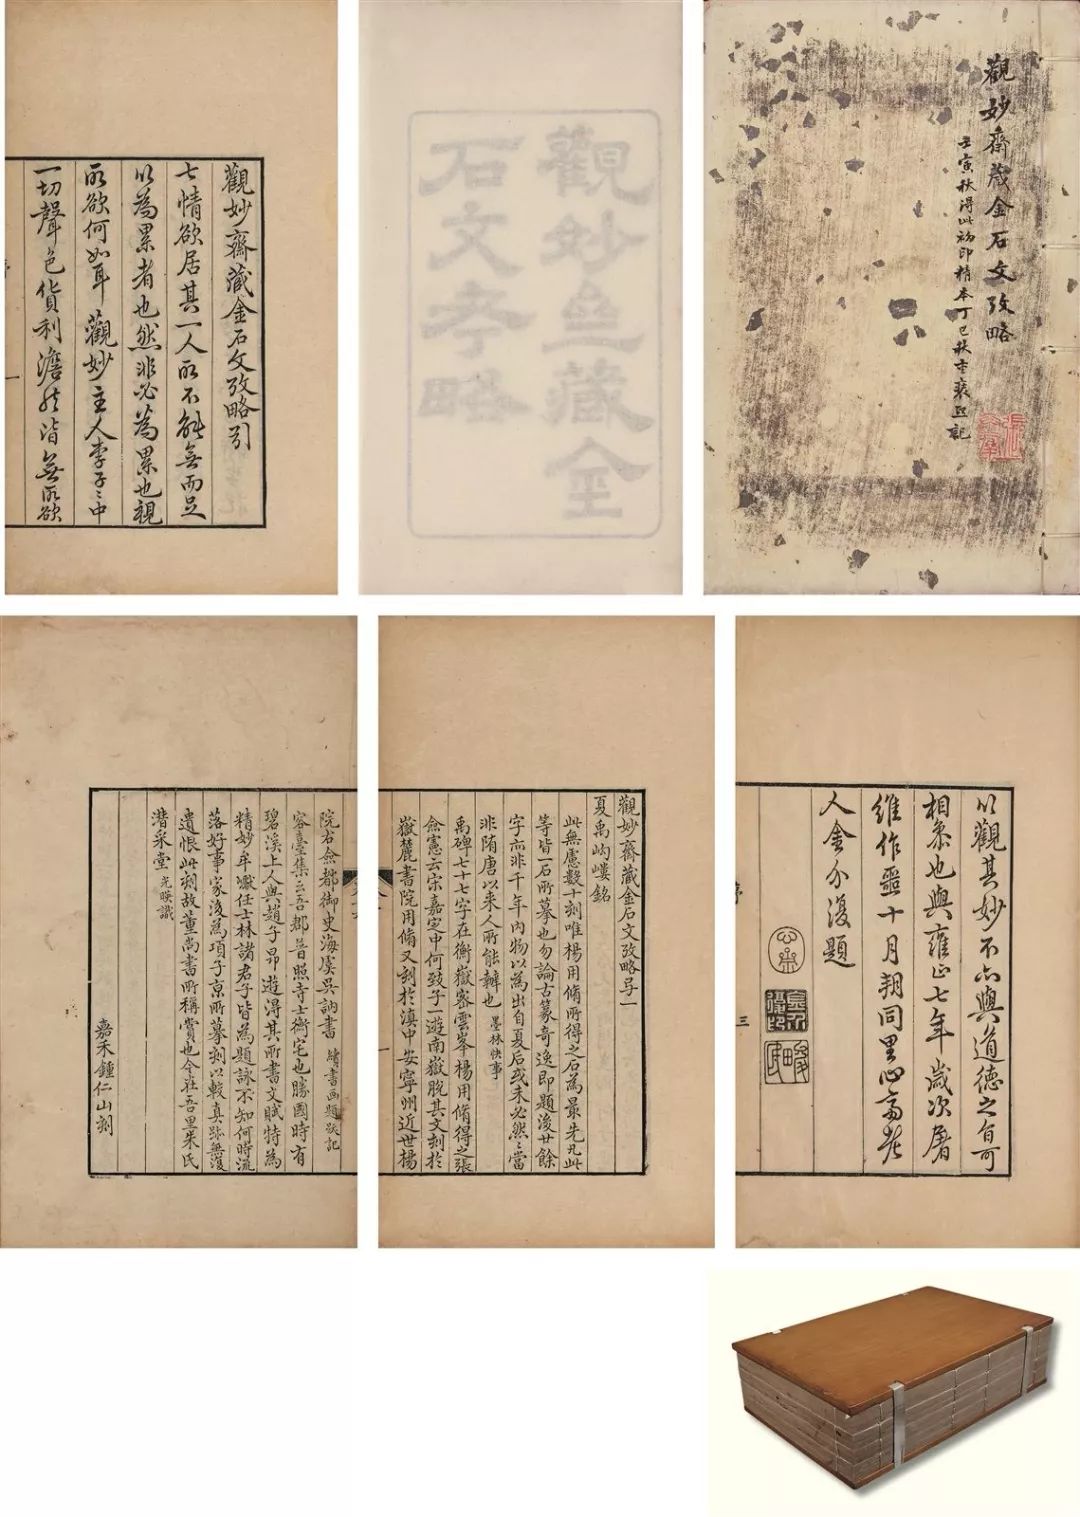 觀妙齋藏金石文攷略
壬寅秋得此初印精本丁巳秋重裝並記
觀妙亝藏金
石文考略
觀妙齋藏金石文攷略引
七情欲居其一人所不能無而足
以為累者也然非必為累也視
所欲何如耳觀妙主人李子〻中
一切聲色貨利澹然皆無所欲
一
以觀其妙不亦與道德之旨可
相參也與雍正七年歲次屠
維作噩十月朔同里心齋老
人金介復題
三
觀妙齋藏金石文攷略弓一
夏禹岣嶁銘
此無慮數十刻唯楊用脩所得之石為最先凡此
等皆一石所摹也勿論古篆奇逸即題後廿餘
字亦非千年內物以為出自夏后或未必然〻當
非隋唐以來人所能辦也 墨林快事
禹碑七十七字在衡嶽密雲峯楊用脩得之張
僉憲云宋嘉定中何致子一遊南嶽脫其文刻於
嶽麓書院用脩又刻於滇中安寧州近世楊
一
院右僉都御史海虞吳訥書 續書画題跋記
容臺集云吾郡普照寺士衡宅也勝國時有
碧溪上人與趙子昂遊得其所書文賦特為
精妙牟巘任士林諸君子皆為題詠不知何時流
落好事家後為項子京所摹刻以較真跡無復
遺恨此刻故董尚書所稱賞也今在吾里朱氏
潛采堂 光暎識
嘉禾鍾仁山刻